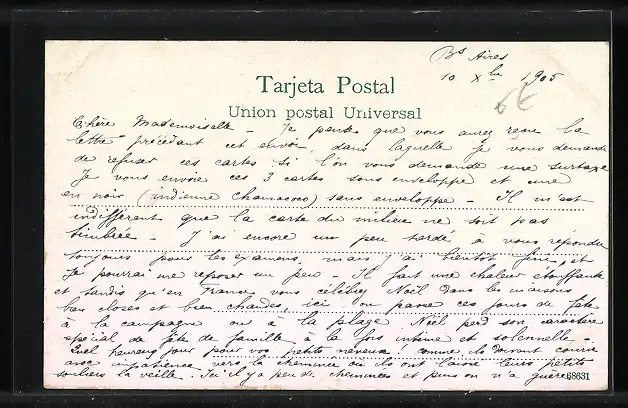 Bs Aires
10 Xbre 1905
6€
Tarjeta Postal
Union postal Universal
Chère Mademoiselle - Je pense que vous aurez reçu la
lettre précédant cet envoi, dans laquelle je vous demande
de refuser ces cartes si l'on vous demande une surtaxe
Je vous envoie ces 3 cartes sous enveloppe et une
en noir (indienne Chamacoco) sans enveloppe - Il m'est
indifférent que la carte du milieu ne soit pas
timbrée - J'ai encore un peu tardé à vous répondre
toujours pour les examens, mais j'ai bientôt fini et
je pourrai me reposer un peu - Il fait une chaleur étouffante
et tandis qu'en France vous célébrez Noël dans les maisons
bien closes et bien chaudes, ici on passe ces jours de fête
à la campagne ou à la plage Noël perd son caractère
spécial de fête de famille à la fois intime et solennelle -
Quel heureux jour pour vos petits neveux comme ils doivent courir
avec impatience vers la cheminée où ils ont laissé leurs petits
souliers la veille. Ici il y a peu de cheminées et puis on n'a guère
68631